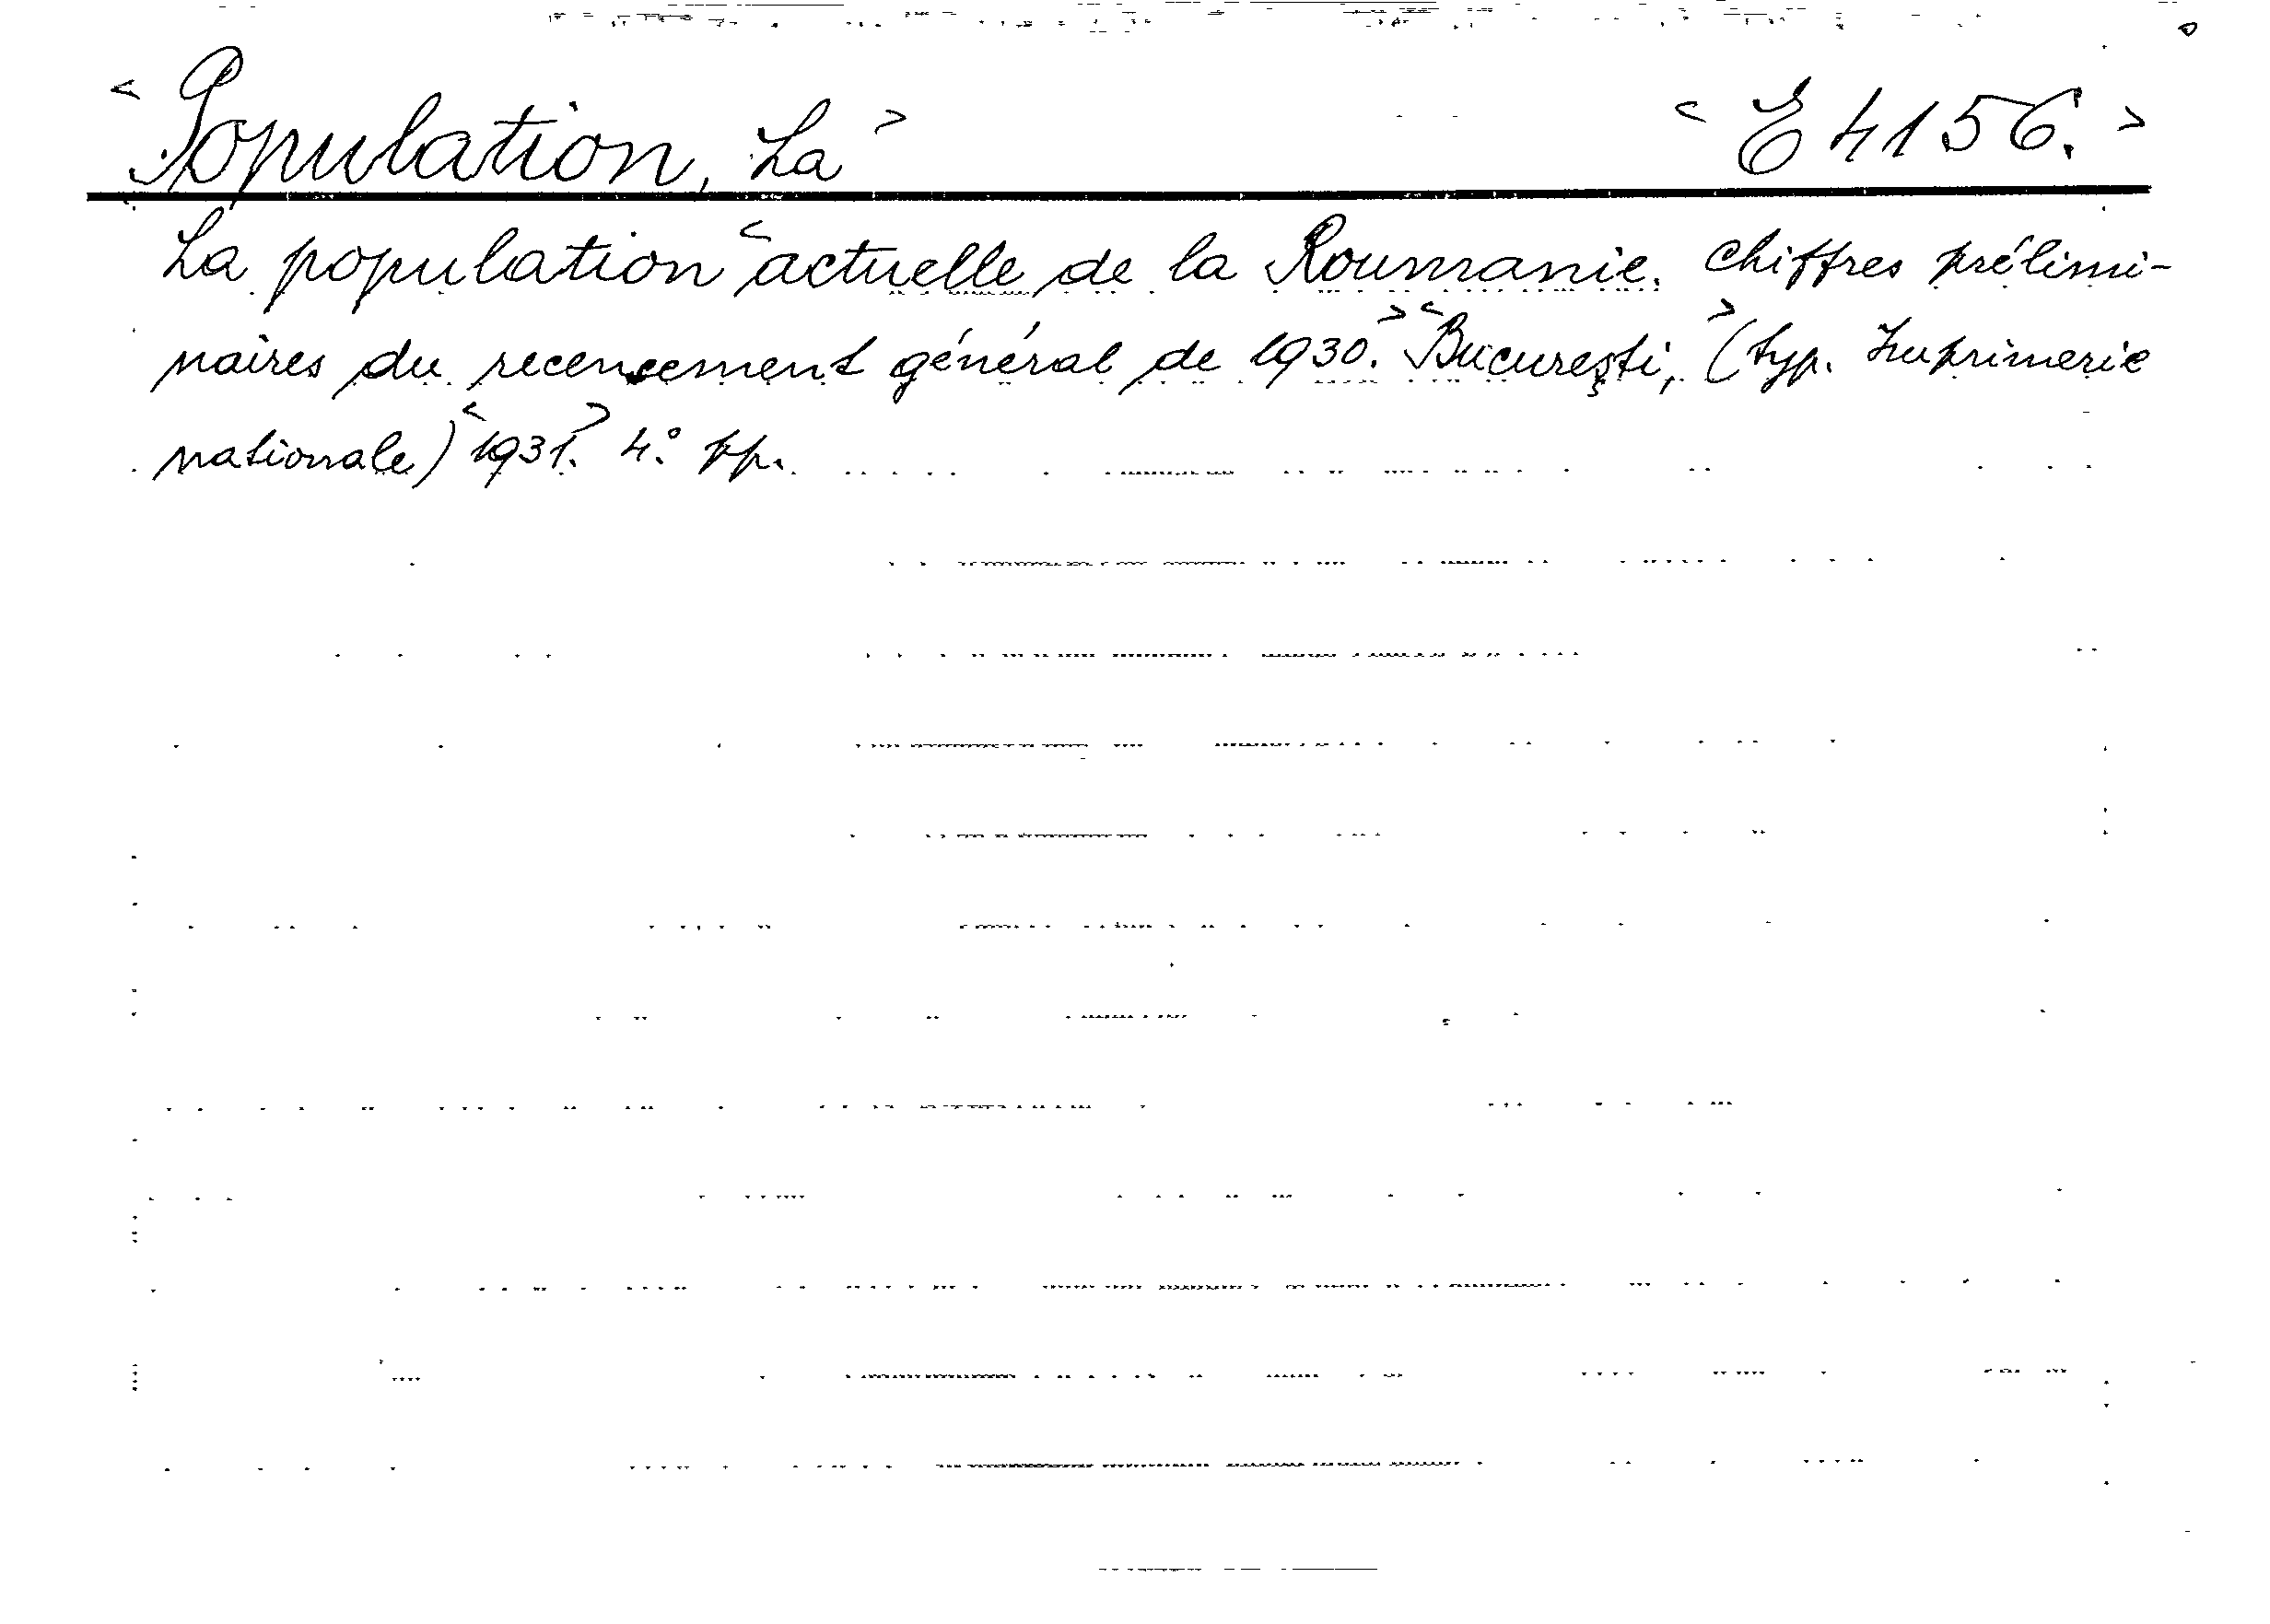 <Population, La> <E 4156.>
La population <actuelle de la Roumanie. Chiffres prélimi-
naires du recensement général de 1930.> <Bucureşti,> (typ. Imprimerie
nationale) <1931.> 4.° pp.